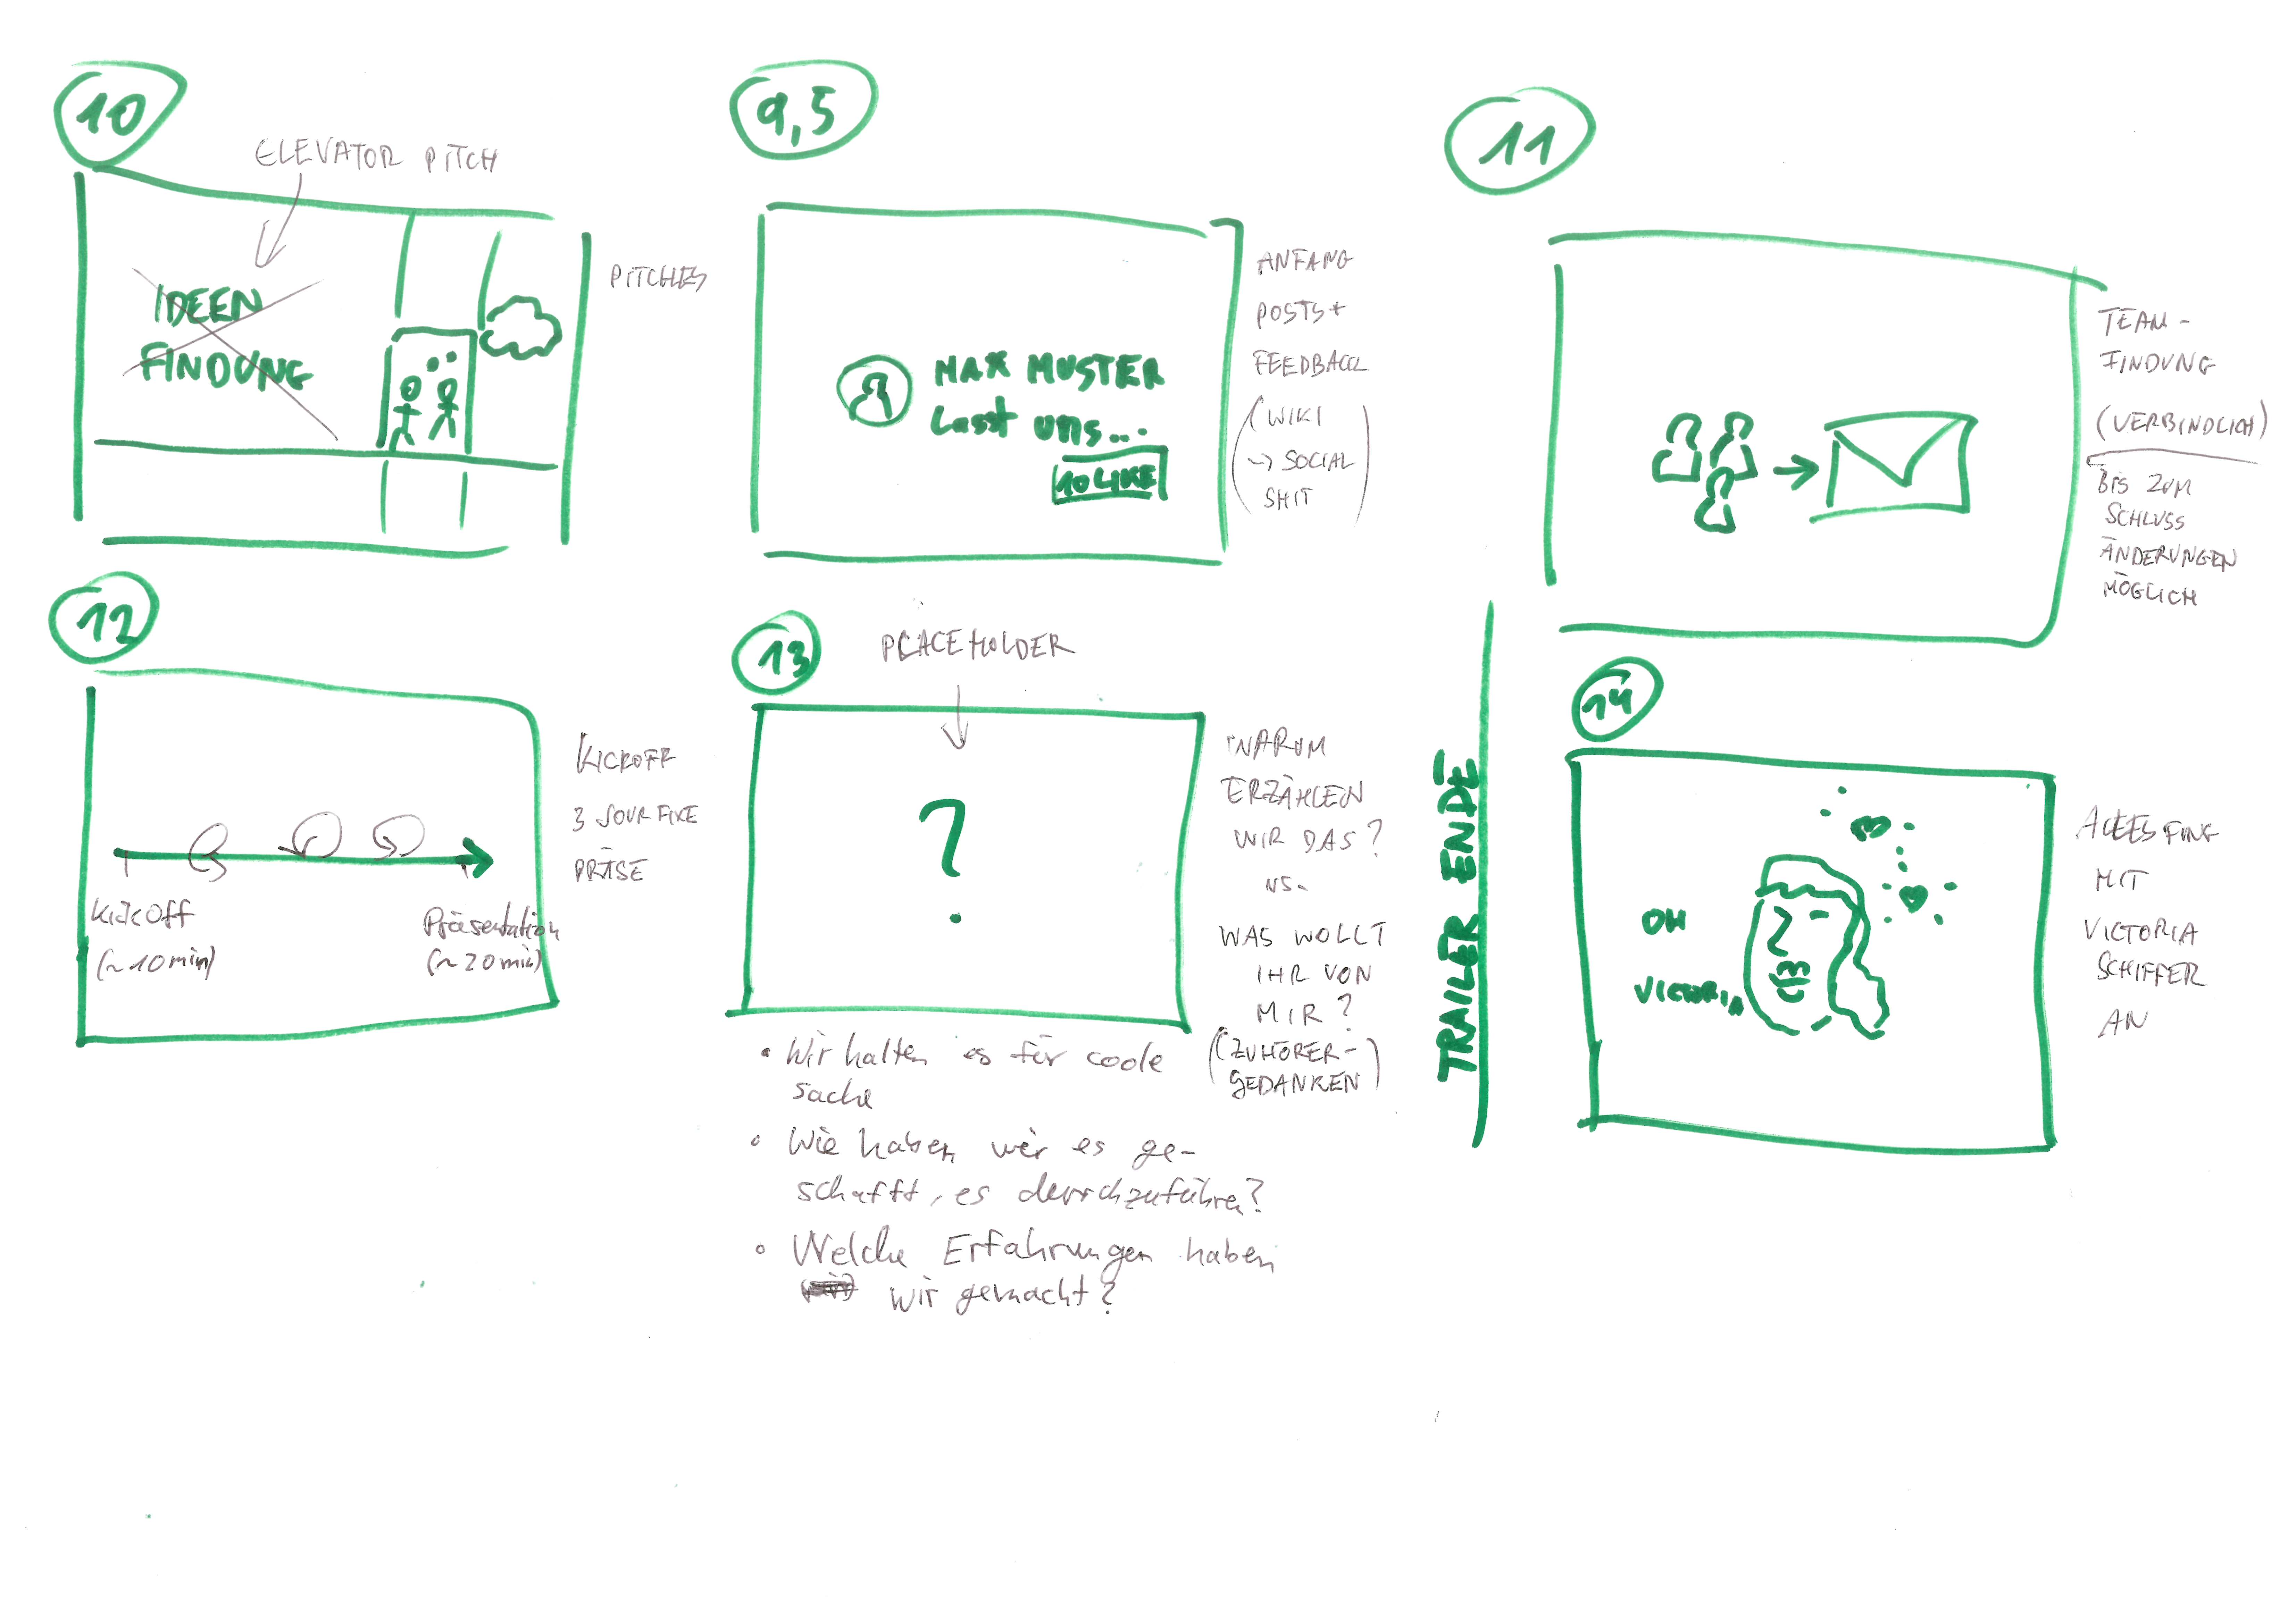 10
ELEVATOR PITCH
IDEEN
FINDUNG
PITCHES
9,5
MAX MUSTER
Lasst uns...
10 LIKE
ANFANG
POSTS +
FEEDBACK
(WIKI
-> SOCIAL
SHIT)
11
TEAM-
FINDUNG
(VERBINDLICH)
BIS ZUM
SCHLUSS
ÄNDERUNGEN
MÖGLICH
12
Kickoff
(~10min)
Präsentation
(~20min)
KICKOFF
3 JOUR FIXE
PRÄSE
13
PLACEHOLDER
?
WARUM
ERZÄHLEN
WIR DAS?
VS.
WAS WOLLT
IHR VON
MIR?
(ZUHÖRER-
GEDANKEN)
• Wir halten es für coole
Sache
• Wie haben wir es ge-
schafft, es durchzuführen?
• Welche Erfahrungen haben
wir gemacht?
TRAILER ENDE
14
OH
VICTORIA
ALLES FING
MIT
VICTORIA
SCHIFFER
AN